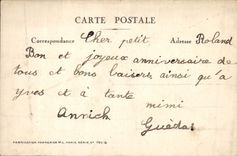 CARTE POSTALE
Correspondance Cher petit Adresse Roland
Bon et joyeux anniversaire de
tous et bons baisers ainsi qu'a
Yves et à tante
mimi
Annick Guédas
FABRICATION FRANÇAISE M.L. PARIS. SÉRIE N°